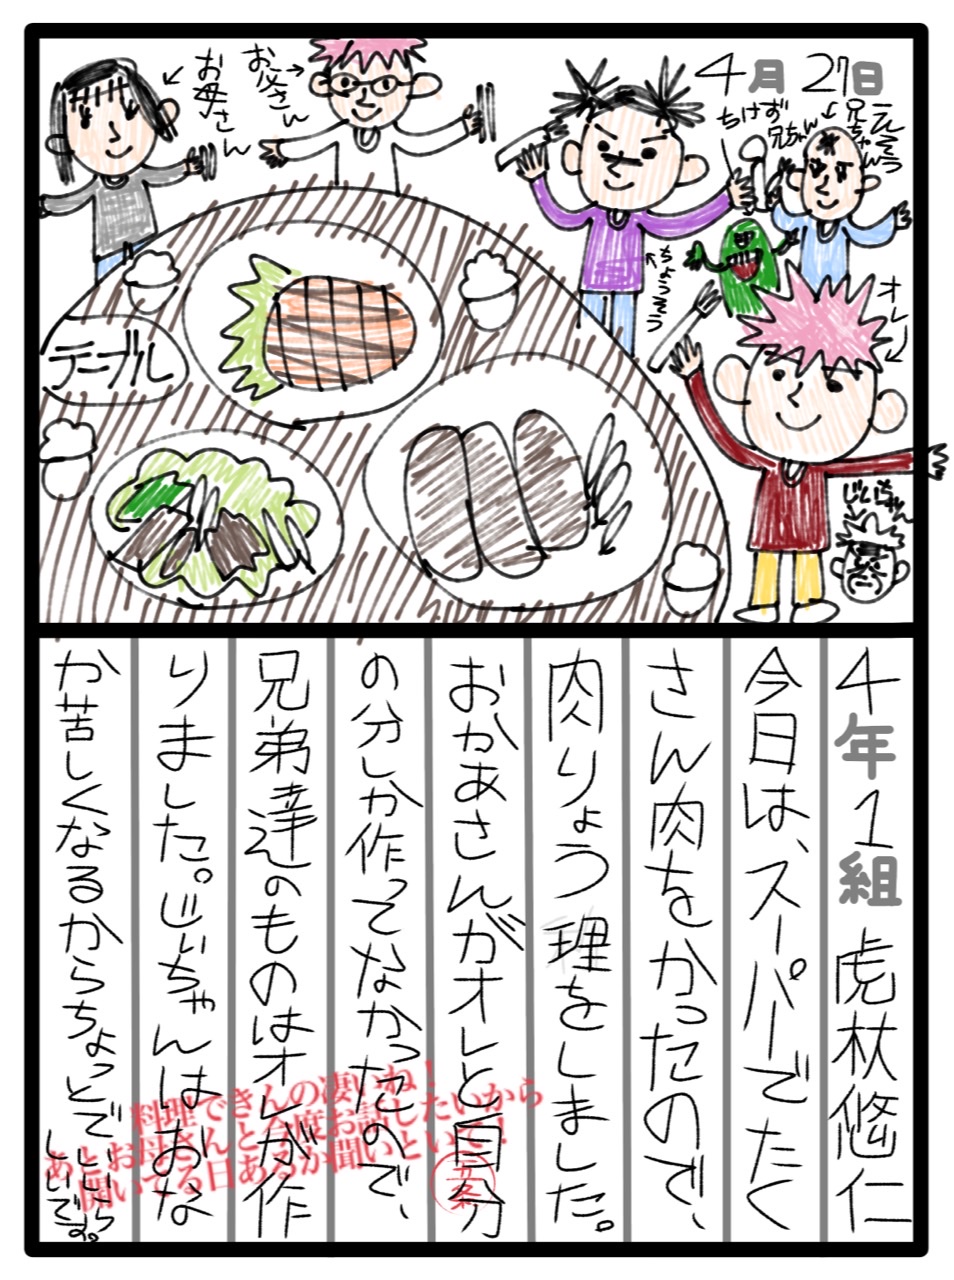 4月27日
お母さん
お父さん
ちけず兄ちゃん
えそう兄ちゃん
ちょうそう
オレ
じいちゃん
テーブル
4年1組 虎杖悠仁
今日は、スーパーでたく
さん肉をかったので、
肉りょう理をしました。
おかあさんがオレと自分
の分しか作ってなかったので、
兄弟達のものはオレが作
りました。じいちゃんはおな
か苦しくなるからちょっとで
いいらしいです。
料理できんの凄いね！
あとお母さんと今度お話したいから
開いてる日あるか聞いといて！
五条